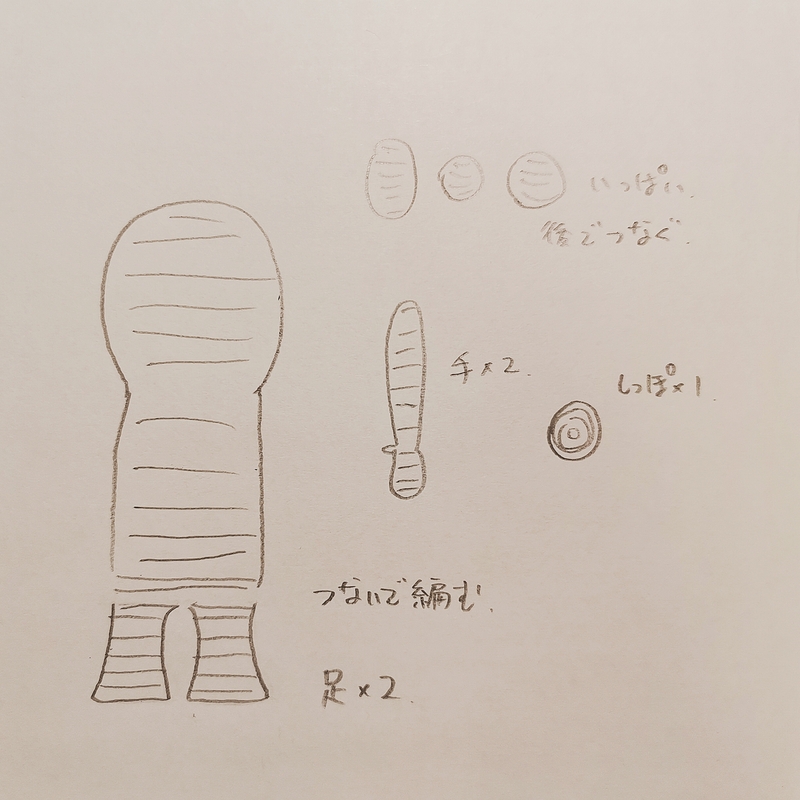 いっぱい.
後でつなぐ.
手×2.
しっぽ×1.
つないで編む.
足×2.